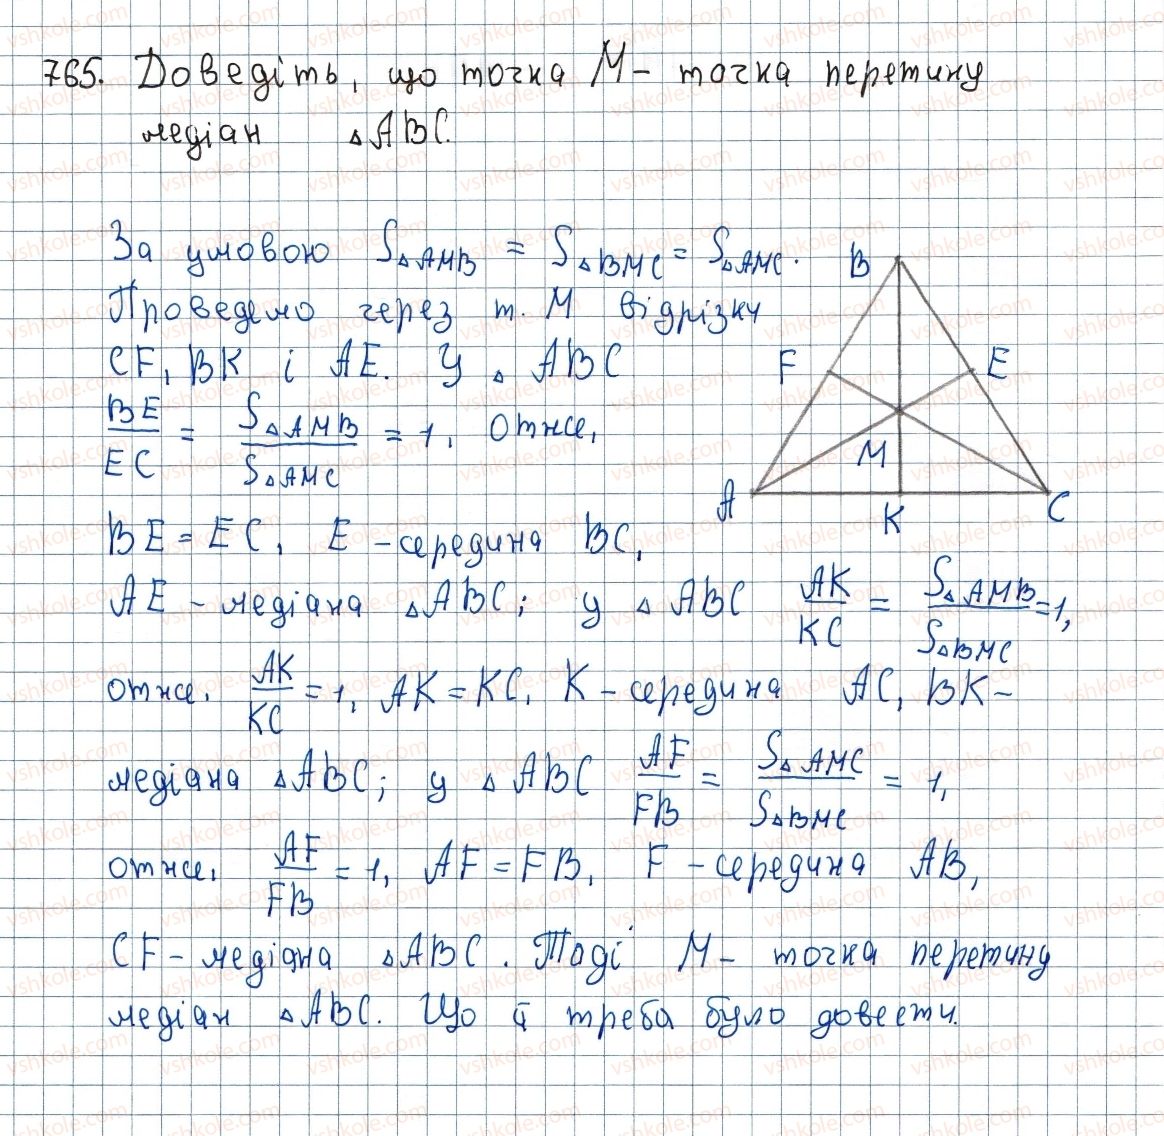 765. Доведіть, що точка М – точка перетину
медіан △ABC.
За умовою S△AMB = S△BMC = S△AMC.
Проведемо через т. М відрізки
CF, BK і AE. У △ABC
BE/EC = S△AMB/S△AMC = 1, отже,
BE = EC, E – середина BC,
AE – медіана △ABC; у △ABC AK/KC = S△AMB/S△BMC = 1,
отже, AK/KC = 1, AK = KC, K – середина AC, BK –
медіана △ABC; у △ABC AF/FB = S△AMC/S△BMC = 1,
отже, AF/FB = 1, AF = FB, F – середина AB,
CF – медіана △ABC. Тоді М – точка перетину
медіан △ABC. Що й треба було довести.
B
F
E
M
A
K
C
vshkole.com